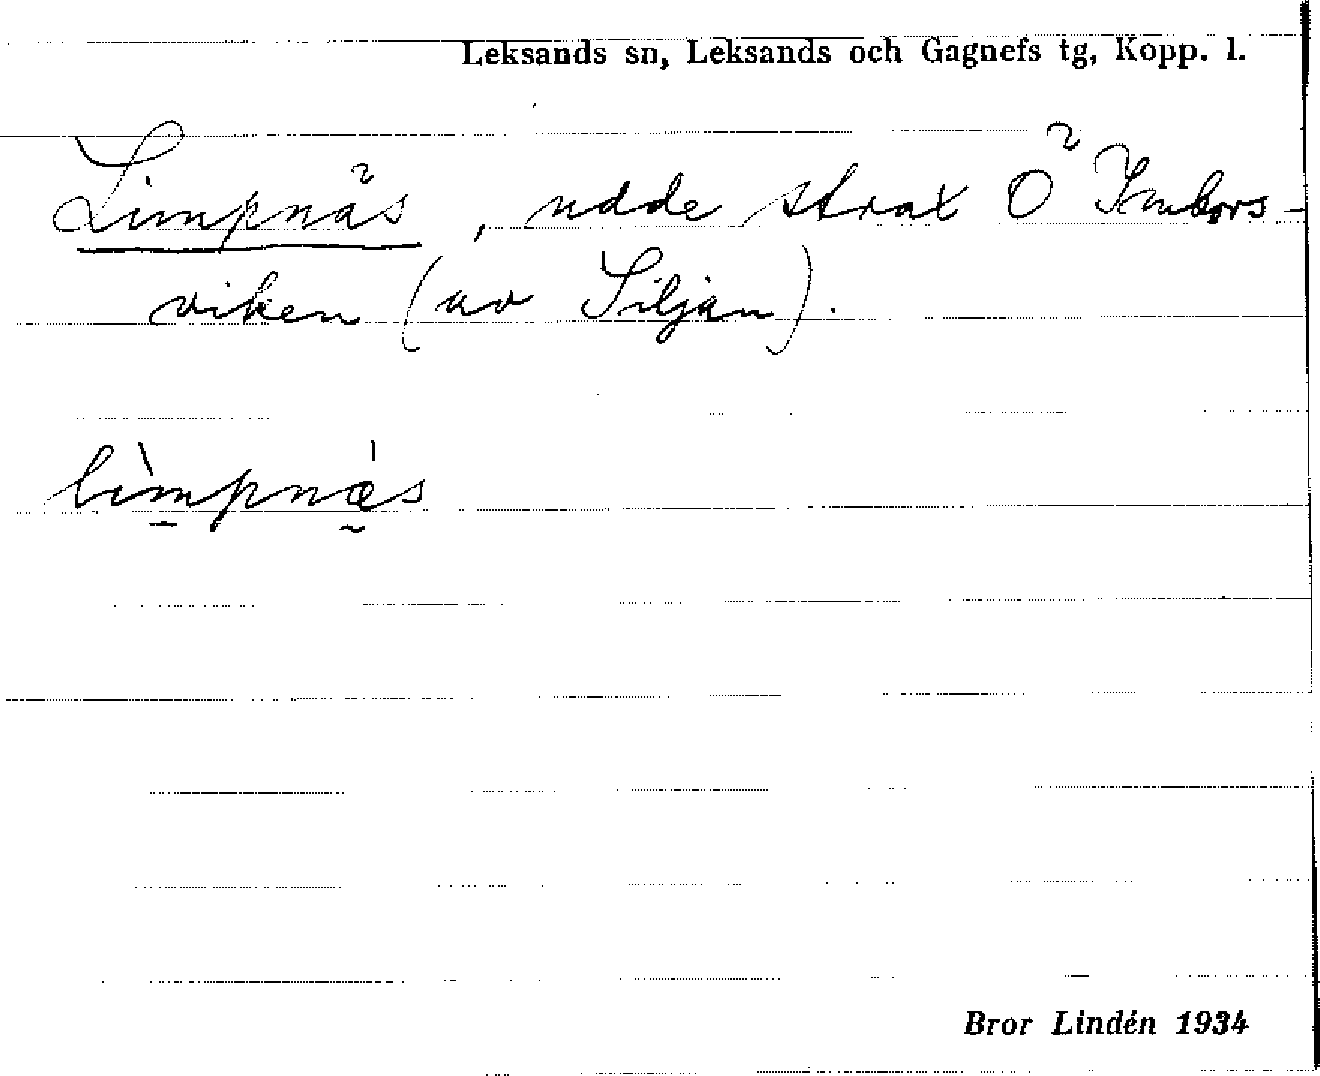 Leksands sn, Leksands och Gagnefs tg, Kopp. l.
Limpnäs, udde strax Ö Imbors-
viken (av Siljan).
lìmpnæ̀s
Bror Lindén 1934